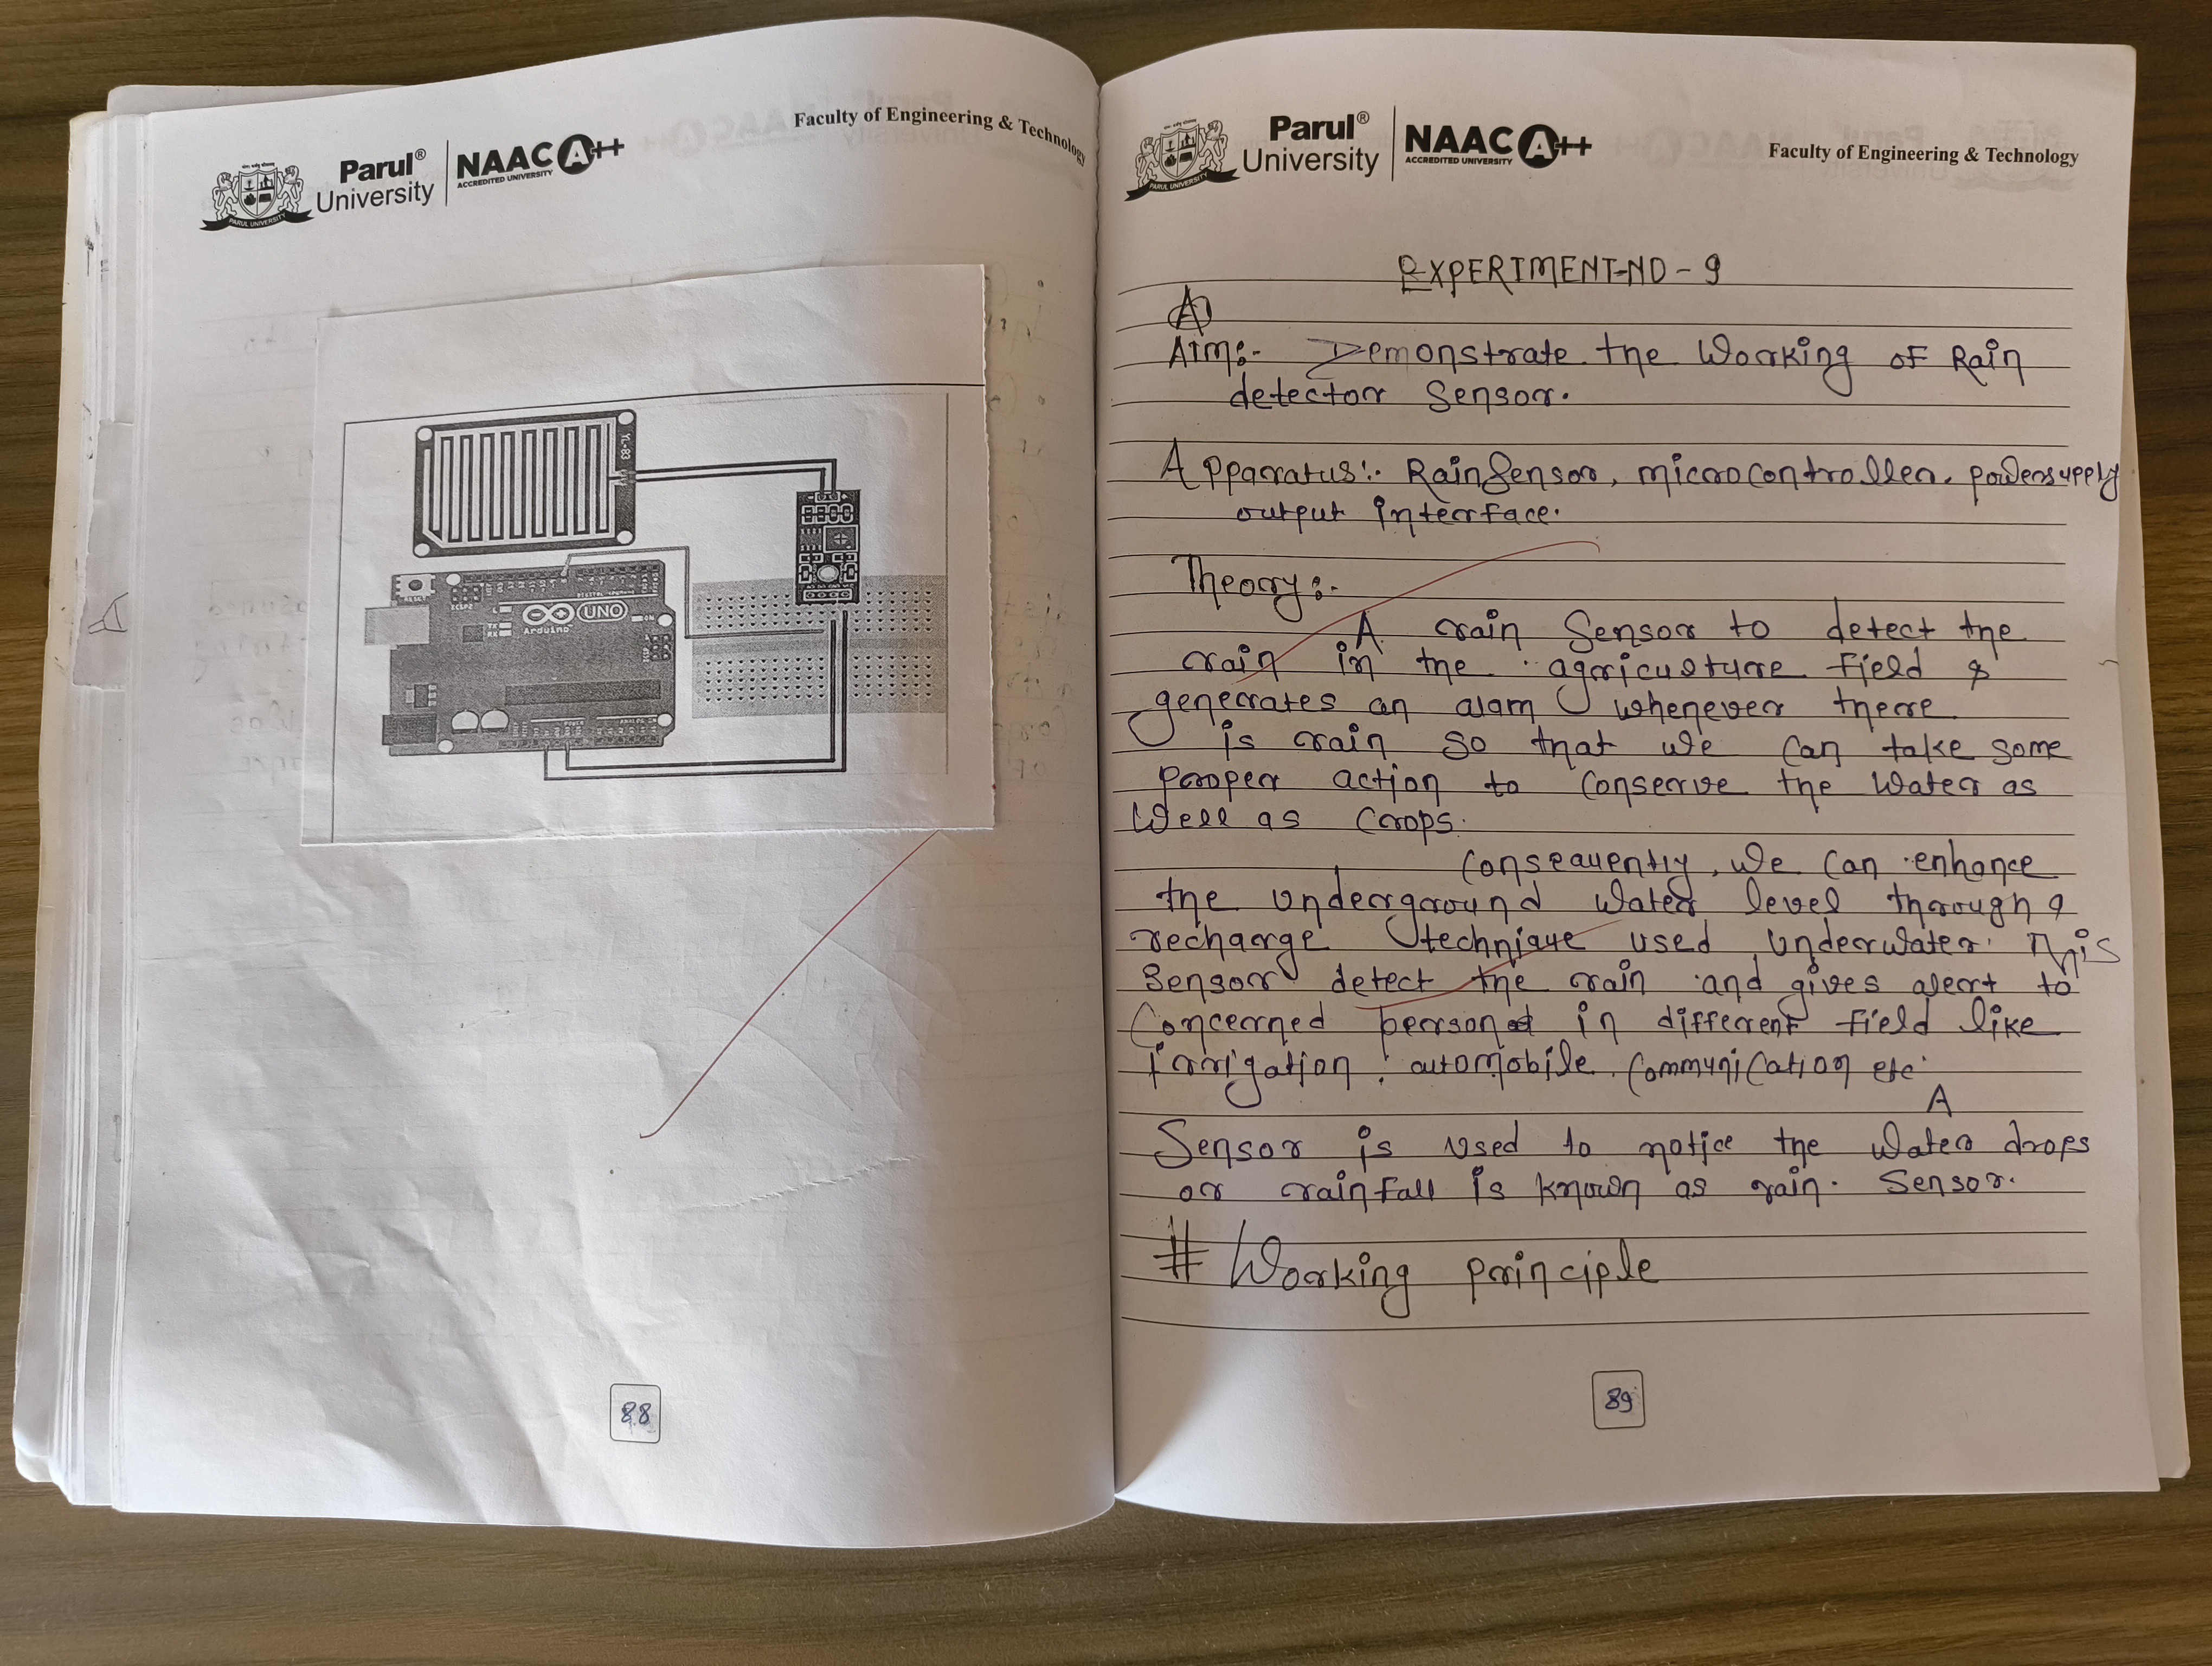 Parul®
University
NAAC A++
ACCREDITED UNIVERSITY
PARUL UNIVERSITY
Faculty of Engineering & Technology
YL-83
RESET
ICSP2
L
TX
RX
ON
UNO
Arduino
POWER
ANALOG IN
88
Parul®
University
NAAC A++
ACCREDITED UNIVERSITY
PARUL UNIVERSITY
Faculty of Engineering & Technology
EXPERIMENT-NO - 9
A
AIm:- Demonstrate the Working of Rain
detector Sensor.
Apparatus:- Rain Sensor, microcontroller. powersupply
output interface.
Theory:-
A rain Sensor to detect the
rain in the agriculture field &
generates an alam whenever there
is rain so that we can take some
proper action to conserve the Water as
Well as Crops.
Consequently, we can enhance
the underground water level through
recharge technique used underwater. This
Sensor detect the rain and gives alert to
Concerned person in different field like
Irrigation, automobile, Communication etc.
A
Sensor is used to notice the water drops
or rainfall is known as rain. Sensor.
# Working principle
89